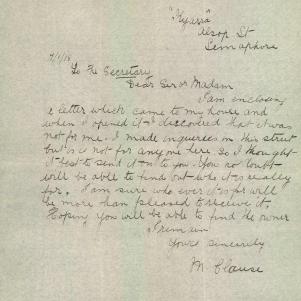 "Kyarra"
Alsop St
Semaphore
7/1/18
To the Secretary
Dear Sir or Madam
I am enclosing
a letter which came to my house and
when I opened it I discovered that it was
not for me. I made inquiries in this street
but is not for anyone here. So I thought
it best to send it on to you. You no doubt
will be able to find out who it is really
for. I am sure who ever it is for will
be more than pleased to receive it.
Hoping you will be able to find the owner
I remain
Yours sincerely
M. Clause